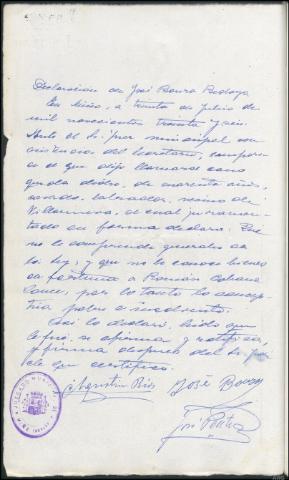 Declaración de José Boura Bodaya
En Miño, a treinta de julio de
mil novecientos treinta y seis.
Ante el Sr. juez municipal con
asistencia del Secretario, compare-
ce el que dijo llamarse como
queda dicho, de cuarenta años,
casado, labrador, vecino de
Villanueva, el cual juramen-
tado en forma declara: Que
no le comprende generales de
la ley; y que no le conoce bienes
de fortuna a Ramón
por lo tanto lo concep-
túa pobre e insolvente.
Así lo declaró, leído que
le fué, se afirma y ratifica,
y firma después del Sr. juez
de que certifico.
Agustin Rios José Boura
José
JUZGADO MUNICIPAL